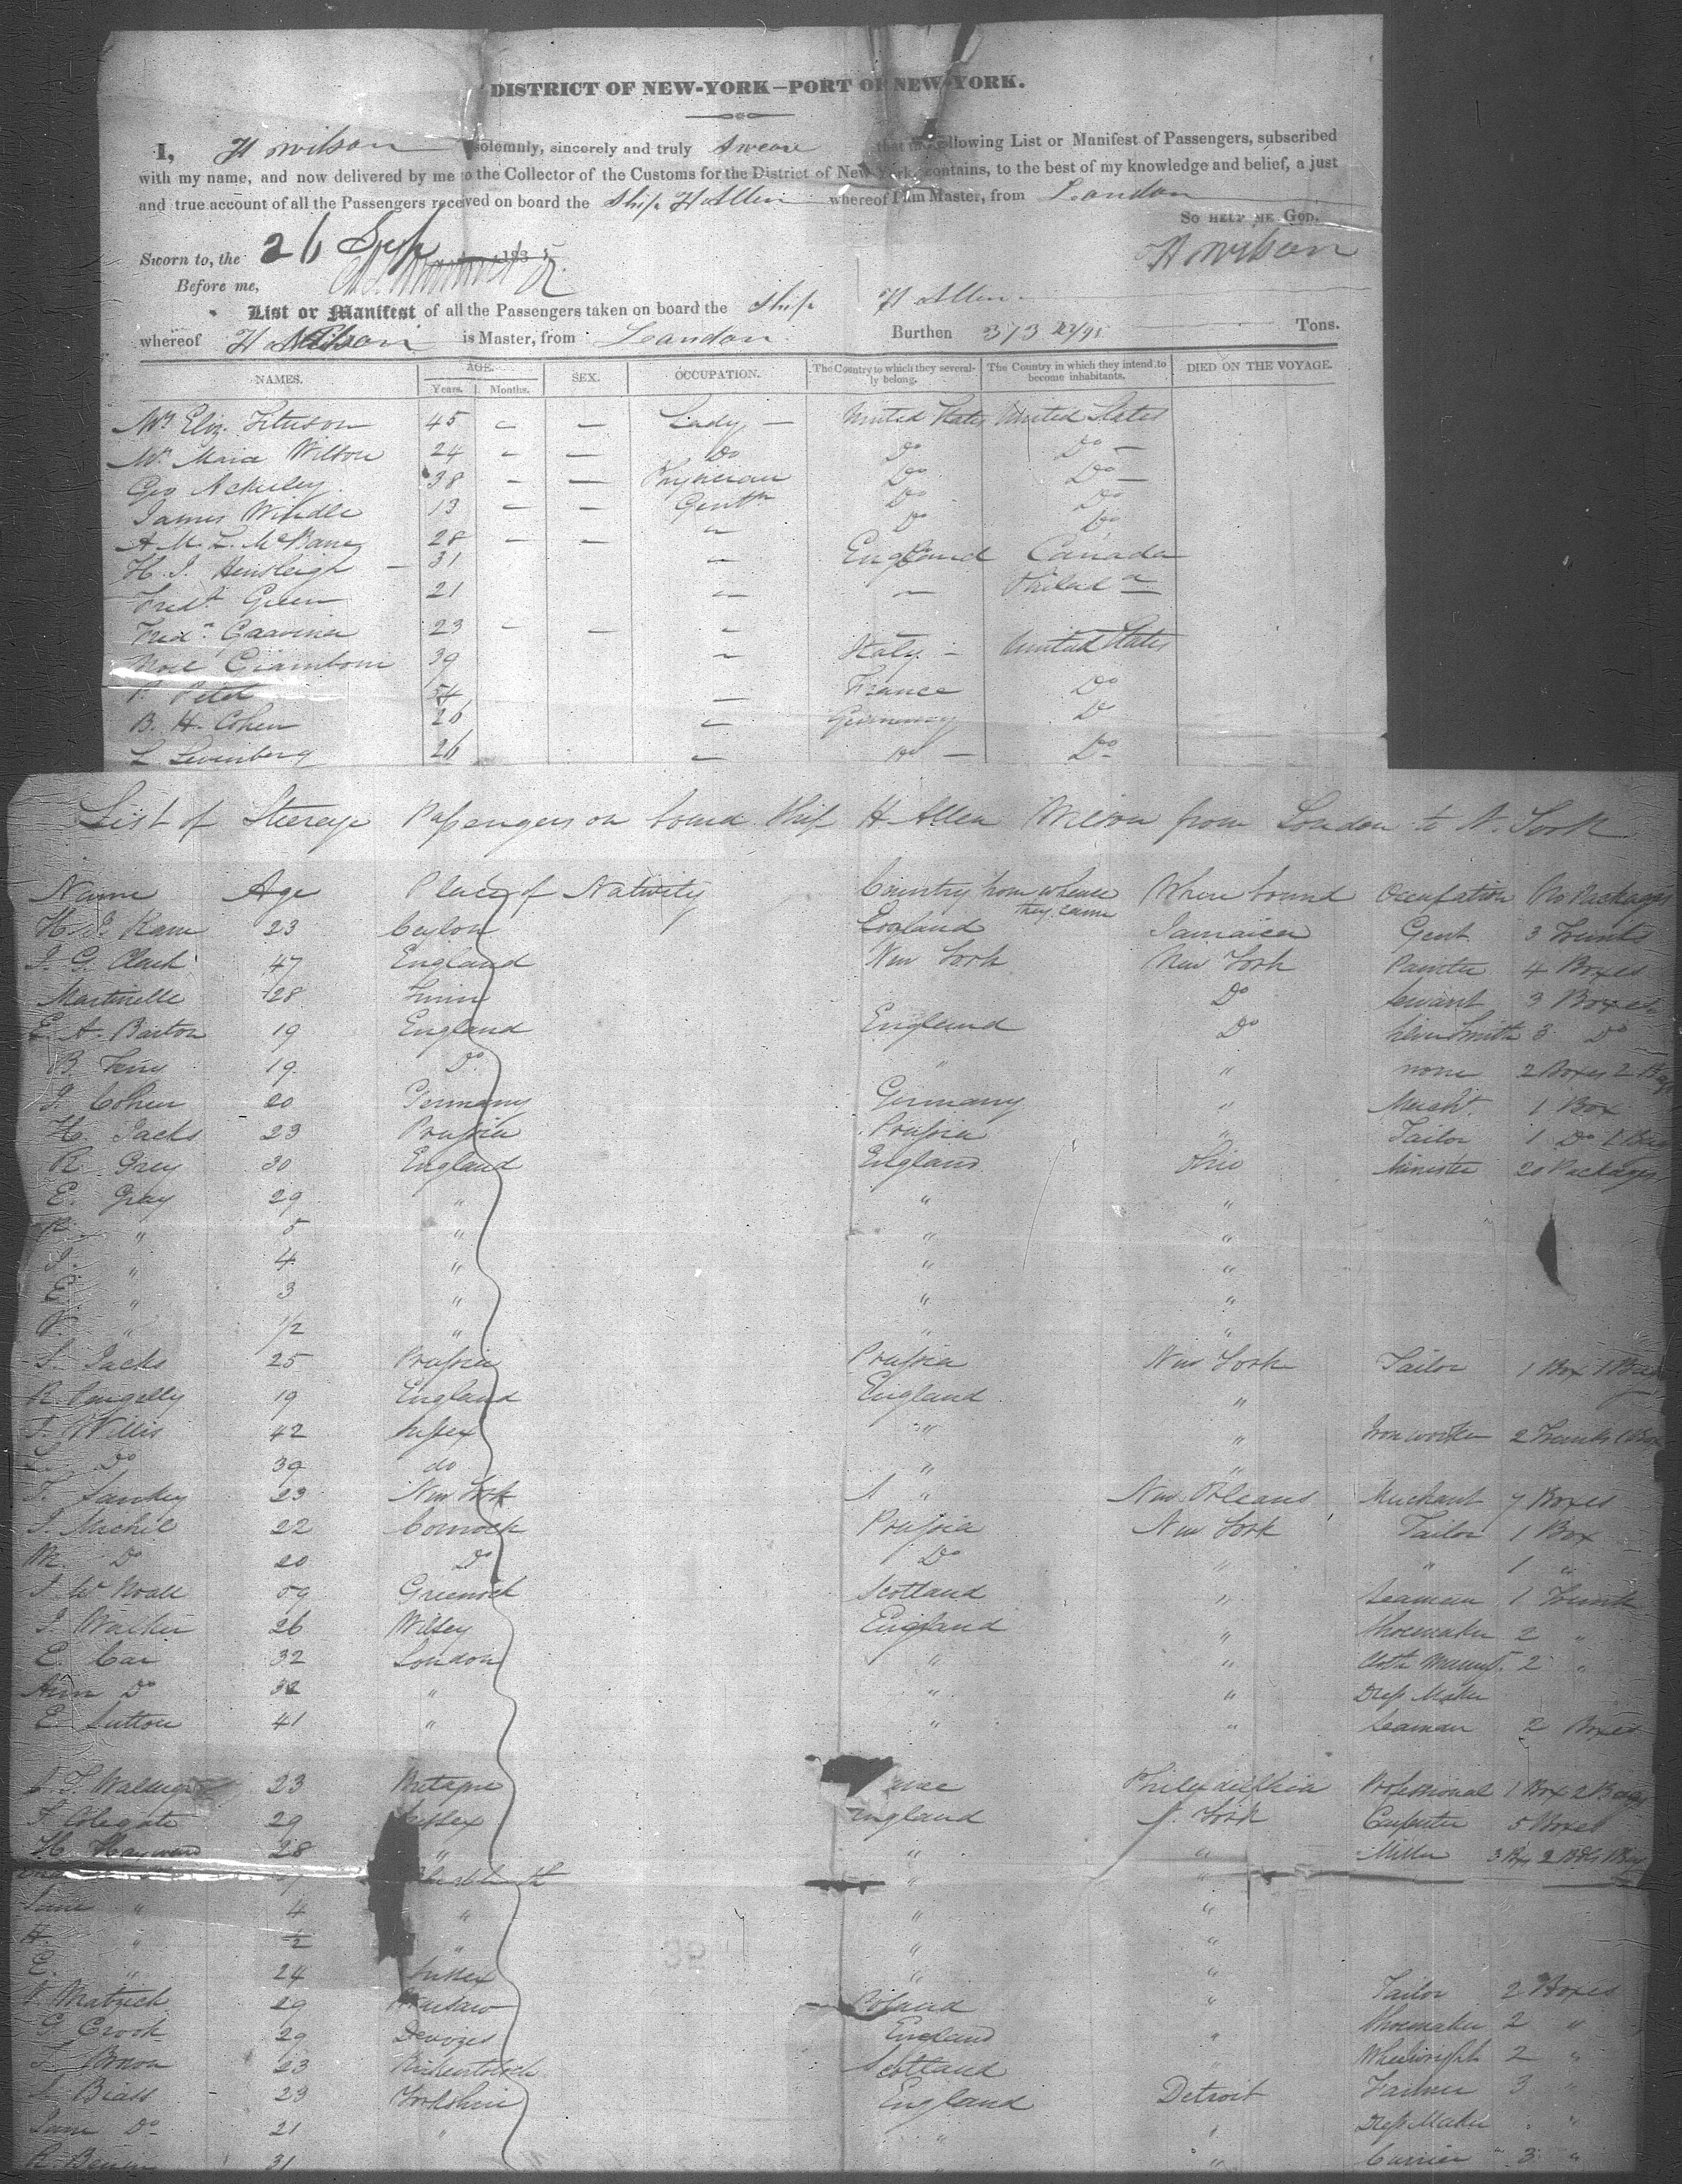 DISTRICT OF NEW-YORK—PORT OF NEW-YORK.
I, H Wilson solemnly, sincerely and truly Swear that the following List or Manifest of Passengers, subscribed
with my name, and now delivered by me to the Collector of the Customs for the District of New York, contains, to the best of my knowledge and belief, a just
and true account of all the Passengers received on board the Ship H Allen whereof I am Master, from London
So HELP ME GOD.
Sworn to, the 26 183 H Wilson
Before me,
List or Manifest of all the Passengers taken on board the Ship H Allen
whereof H Wilson is Master, from London Burthen 373 Tons.
NAMES. AGE. SEX. OCCUPATION. The Country to which they severally belong. The Country in which they intend to become inhabitants. DIED ON THE VOYAGE.
Years. Months.
Mrs Eliz. 45 — — Lady — United States United States
Maria Wilson 24 — — Do Do Do —
Geo Ackerley 38 — — Physician Do Do —
James Windle 13 — — Gentn Do Do
A M L McBane 28 — — — Do Do
H. J. Hensleigh — 31 — England Canada
Fredk Green 21 — — Philada —
Fredk 23 — — — —
Giamboni 39 — Italy — United States
P. 54 — France Do
B. H. Cohen 26 — Germany Do
L Levenberg 26 — Do — Do
List of Steerage Passengers on board Ship H Allen Wilson from London to N. York
Name Age Place of Nativity Country from whence they came Where bound Occupation No Packages
23 Ceylon England Jamaica Gent 3 Trunks
J. G. Clark 47 England New York New York Painter 4 Boxes
Martinelle 28 Do Servant 3 Boxes
E. A. Barton 19 England England Do Silver Smith 3 Do
B. 19 Do " " none 2 Boxes 2 Bags
J. Cohen 20 Germany Germany " Mercht. 1 Box
H. Jacks 23 Prussia Prussia " Tailor 1 Do 1 Bag
R. Grey 30 England England Ohio Minister 20 Packages
E. Gray 29 " " "
R. " 5 " " "
J. " 4 " " "
E. " 3 " " "
" 1/2 " " "
S. Jacks 25 Prussia Prussia New York Tailor 1 Box 1 Bag
R. Pengelly 19 England England "
T. Willis 42 Sussex " " Iron worker 2 Trunks 1 Box
Do 39 do " "
T. Sankey 23 New York " New Orleans Merchant 7 Boxes
J. Michil 22 Prussia New York Tailor 1 Box
M. Do 20 Do Do " " 1 "
J. W 59 Greenock Scotland " Seaman 1 Trunk
J. Walker 26 England " Shoemaker 2 "
E. Car 32 London " " 2 "
Ann Do 32 " " " Dress Maker
E. Sutton 41 " " " Seaman 2 Boxes
23 Philadelphia Professional 1 Box 2 Bags
F. Colegate 29 Sussex England N. York Carpenter 5 Boxes
H. Hayward 28 " " " Miller
" "
Jane " 4 " " "
H. " 1/2 " " "
E. " 24 Sussex " "
29 Warsaw Poland " Tailor 2 Boxes
G. Crook 29 Devizes England " Shoemaker 2 "
Brown 23 Scotland Wheelwright 2 "
Biass 29 Yorkshire England Detroit Farmer 3 "
Jane Do 21 " " " Dress Maker "
R. 31 " " Currier 3 "